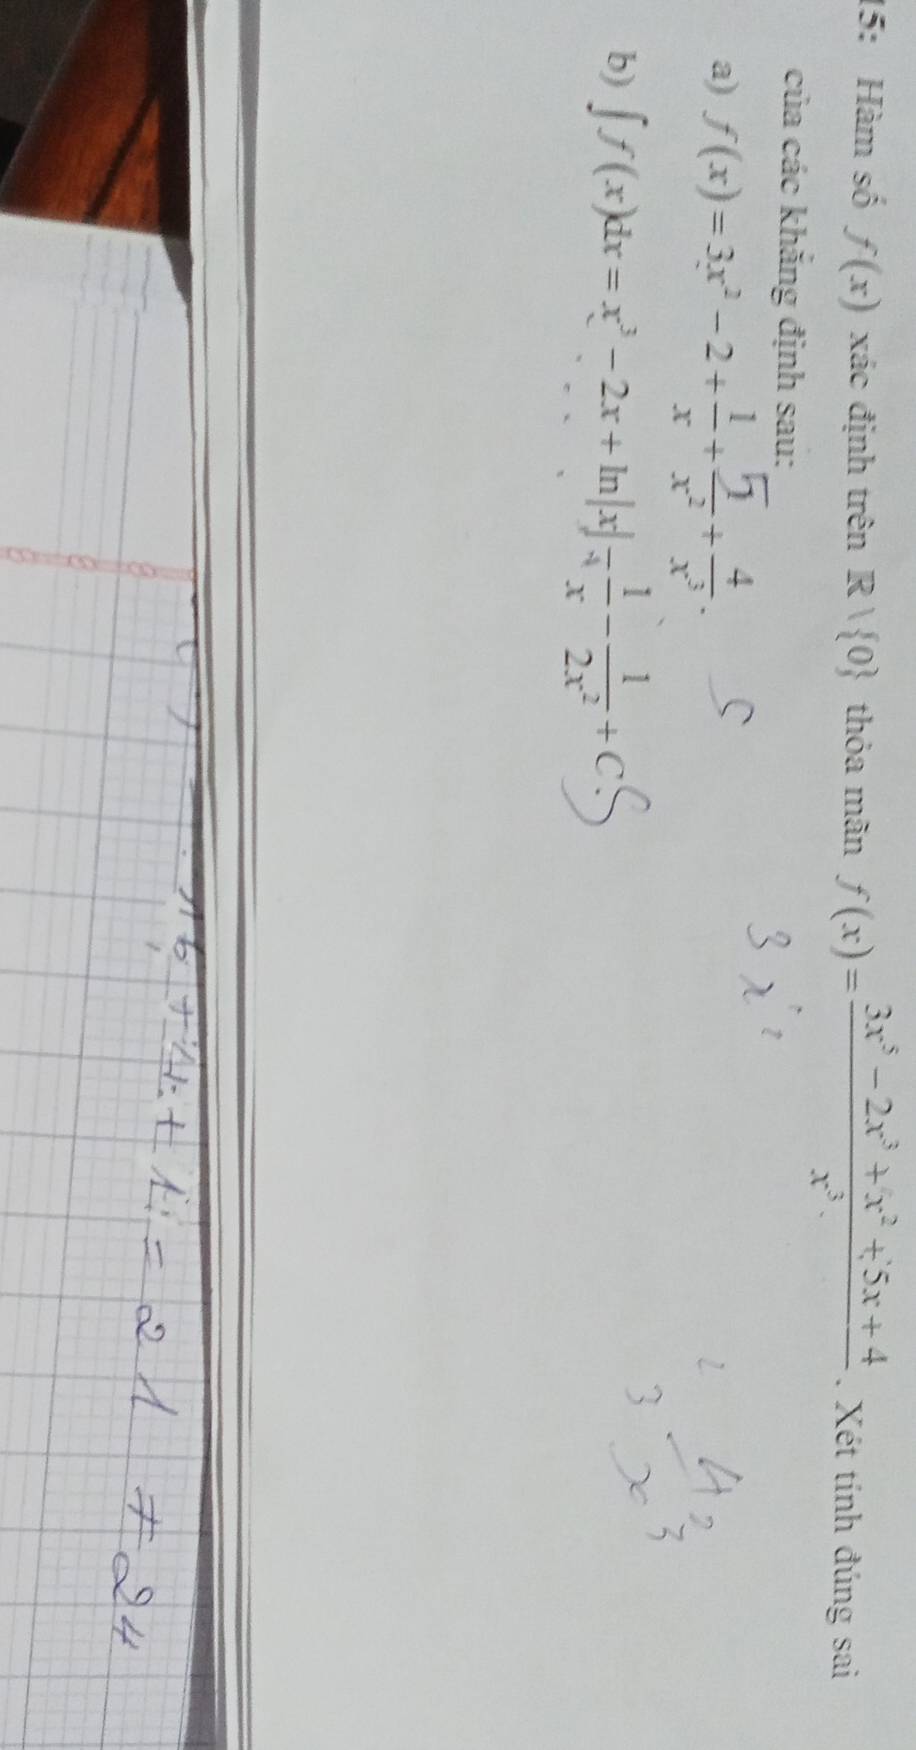 15: Hàm số f(x) xác định trên ℝ\{0} thỏa mãn f(x) = (3x⁵ − 2x³ + x² + 5x + 4)/x³. Xét tính đúng sai
của các khẳng định sau:
a) f(x) = 3x² − 2 + 1/x + 5/x² + 4/x³. S
3x²
b) ∫ f(x)dx = x³ − 2x + ln|x| − 1/x − 1/(2x²) + C. S
16 + 4 + 1 = 21 ≠ 24